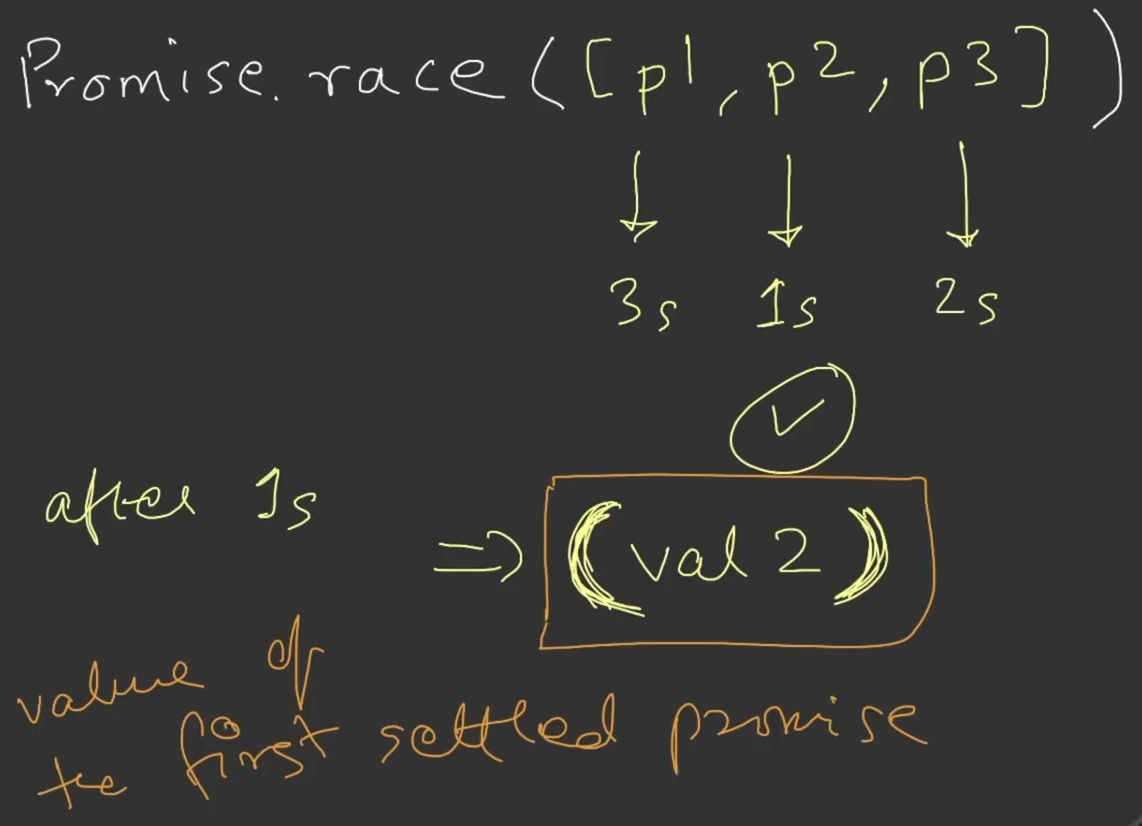 Promise. race ([p1, p2, p3])
3s 1s 2s
after 1s
=> (val 2)
value of
the first settled promise